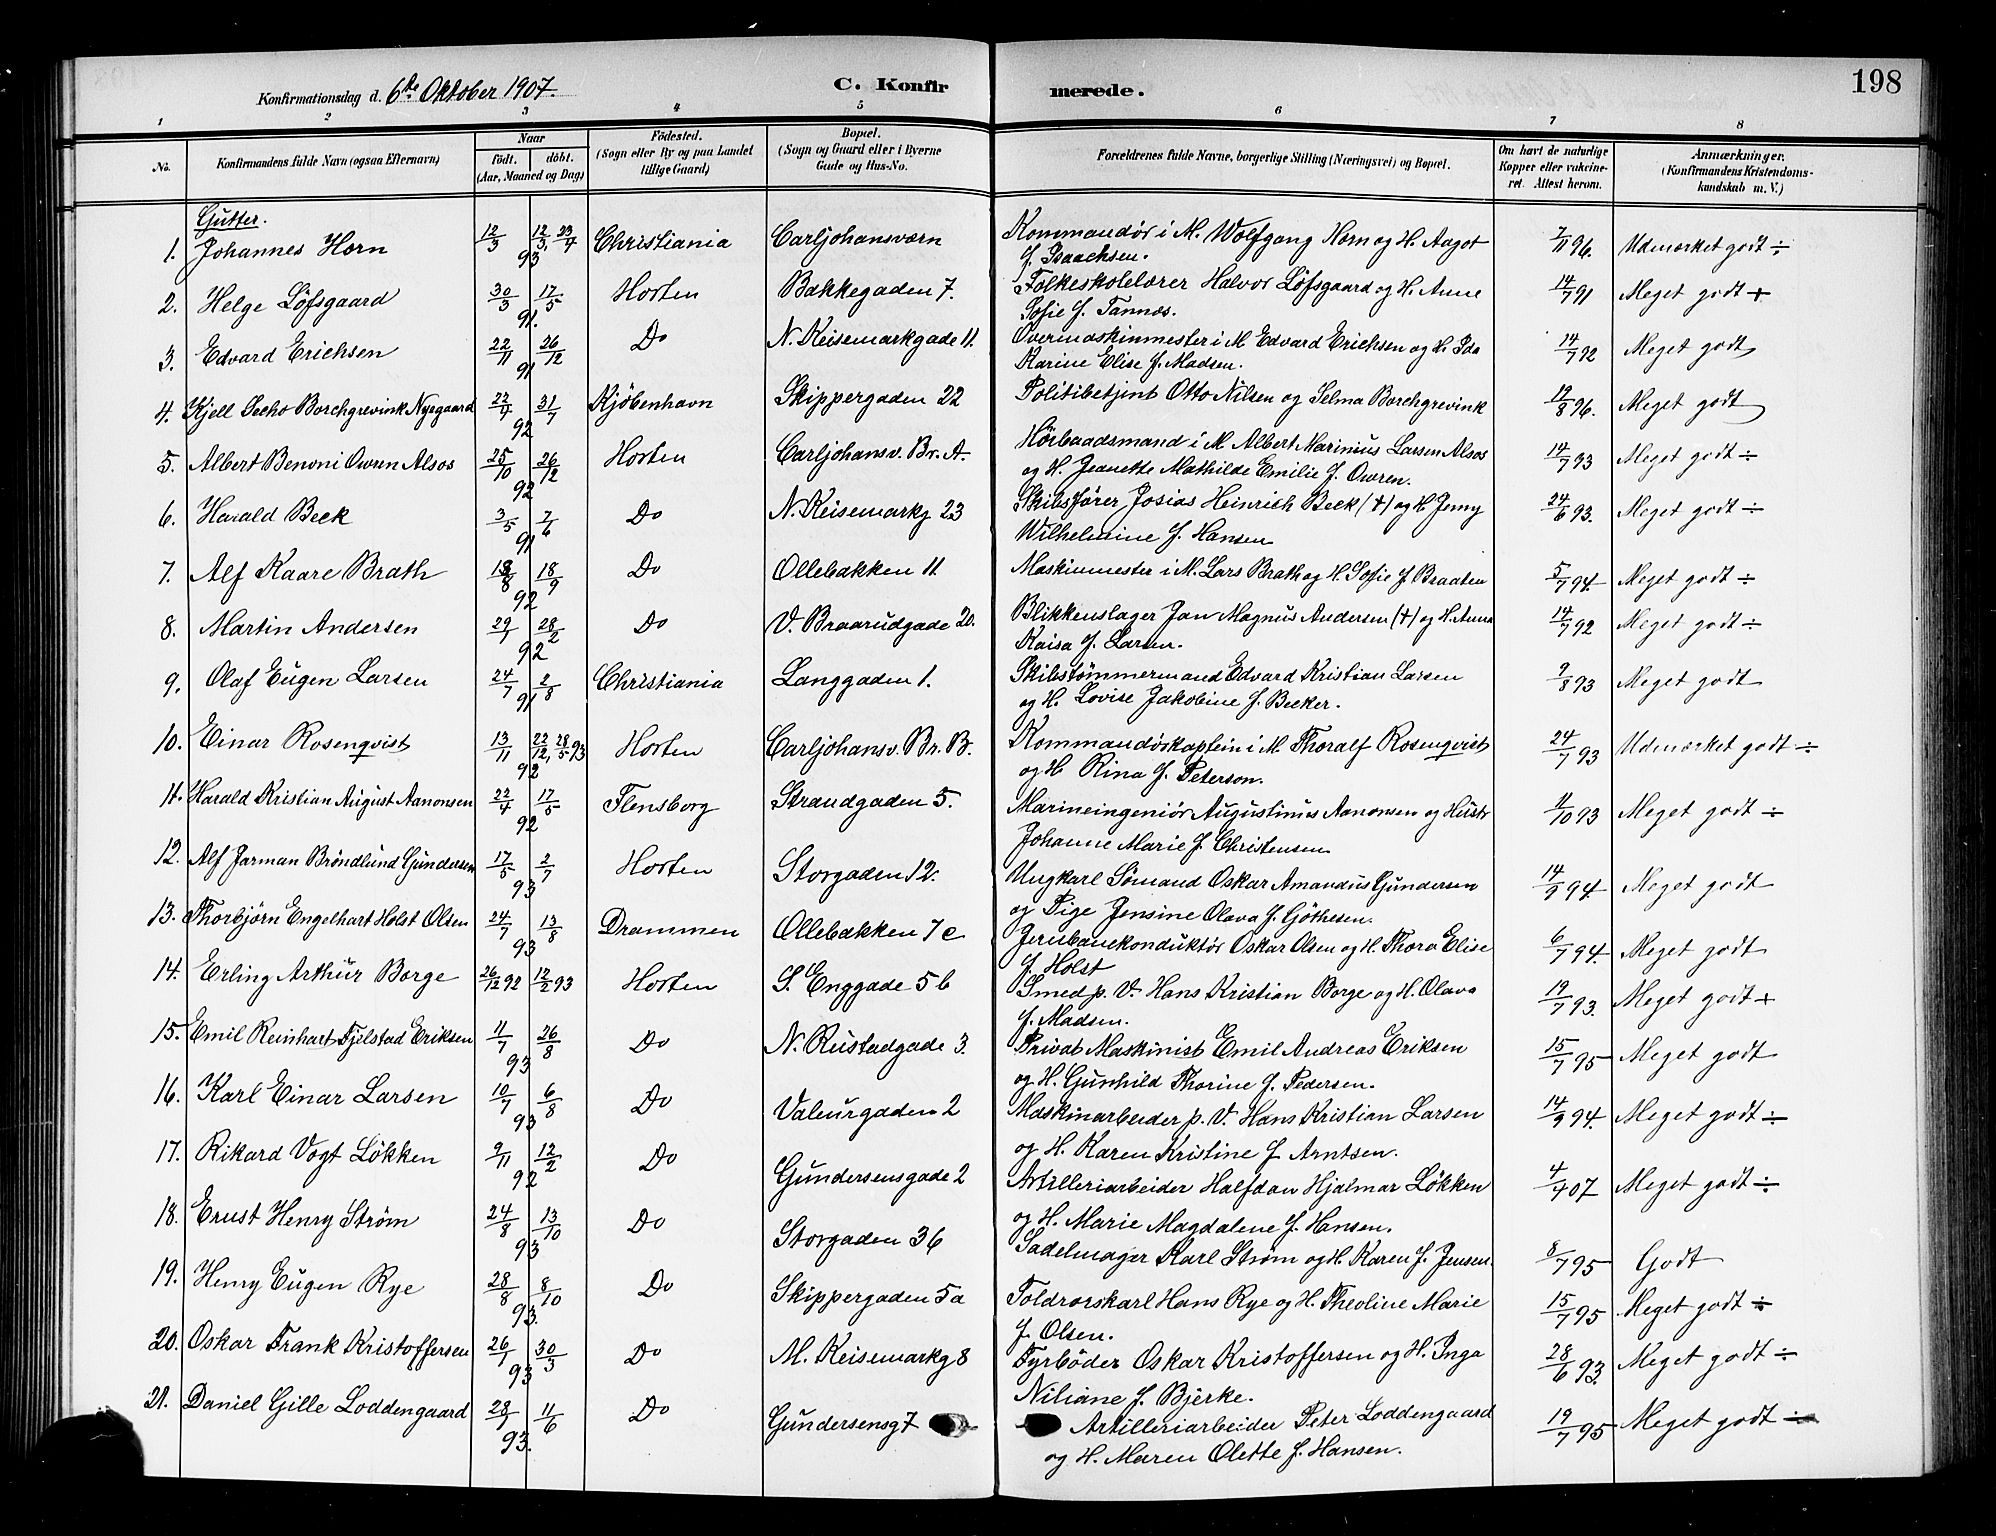 198
Konfirmationsdag d. 6te Oktober 1907. C. Konfirmerede.
1 2 3 4 5 6 7 8
No. Konfirmandens fulde Navn (ogsaa Efternavn) Naar født. døbt. (Aar, Maaned og Dag) Födested. (Sogn eller By og paa Landet tillige Gaard) Bopæl. (Sogn og Gaard eller i Byerne Gade og Hus-No. Forældrenes fulde Navne, borgerlige Stilling (Næringsvei) og Bopæl. Om havt de naturlige Kopper eller vakcineret. Attest herom. Anmærkninger. (Konfirmandens Kristendomskundskab m. V.)
Gutter.
1. Johannes Horn 12/3 12/3, 23/4 93 Christiania Carljohansværn Kommandør i M. Wolfgang Horn og H. Aagot f. Isaachsen. 7/11 96. Udmærket godt ÷
2. Helge Löfsgaard 30/3 17/5 91. Horten Bakkegaden 7. Folkeskolelærer Halvor Löfsgaard og H. Anne Sofie f. Tannæs. 14/7 91 Meget godt +
3. Edvard Erichsen 22/11 26/12 91 Do N. Keisemarkgade 11. Overmaskinmester i M Edvard Erichsen og H. Ida Karine Elise f. Madsen. 14/7 92 Meget godt
4. Kjell Secho Borchgrevink Nygaard 22/7 31/7 92 Kjöbenhavn Skippergaden 22 Politibetjent Otto Nilsen og Selma Borchgrevink 19/8 96. Meget godt
5. Albert Benoni Owren Alsos 25/10 26/12 92 Horten Carljohansv. Br. A. Hörbaadsmand i M. Albert Marinius Larsen Alsos og H. Jeanette Mathilde Emilie f. Owren. 14/7 93 Meget godt ÷
6. Harald Beck 3/5 7/6 91 Do N. Keisemarkg 23 Skibsfører Josias Heinrich Beck (+) og H Jenny Wilhelmine f. Hansen 24/6 93. Meget godt ÷
7. Alf Kaare Brath 18/8 18/9 92 Do Ollebakken 11. Maskinmester i M. Lars Brath og H. Sofie f Braaten 5/7 94. Meget godt ÷
8. Martin Andersen 29/1 28/2 92 Do V. Braarudgade 20. Blikkenslager Jan Magnus Andersen (+) og H. Anna Kaisa f. Larsen. 14/7 92 Meget godt ÷
9. Olaf Eugen Larsen 24/7 2/8 91 Christiania Langgaden 1. Skibstømmermand Edvard Kristian Larsen og H. Lovise Jakobine f. Becker. 9/8 93 Meget godt
10. Einar Rosenqvist 13/11 22/12, 28/5 93 92 Horten Carljohansv. Br. B. Kommandørkaptein i M. Thoralf Rosenqvist og H Rina f. Peterson. 24/7 93 Udmærket godt ÷
11. Harald Kristian August Aanonsen 22/4 17/5 92 Flensborg Strandgaden 5. Marineingeniör Augustinus Aanonsen og Hustr Johanne Marie f Christensen 11/10 93 Meget godt ÷
12. Alf Jarman Bröndlund Gundersen 17/5 2/7 93 Horten Storgaden 12. Ungkarl Sömand Oskar Amandus Gundersen og Pige Jensine Olava f. Göthesen. 14/9 94. Meget godt
13. Thorbjörn Engelhart Holst Olsen 24/7 13/8 93 Drammen Ollebakken 7c Jernbanekonduktør Oskar Olsen og H. Thora Elise f. Holst 6/7 94. Meget godt
14. Erling Arthur Borge 26/12 92 12/2 93 Horten S. Enggade 5b Smed p. V. Hans Kristian Borge og H. Olava f. Madsen. 19/7 93. Meget godt +
15. Emil Reinhart Fjelstad Eriksen 11/7 26/8 93 Do N. Rustadgade 3. Privat Maskinist Emil Andreas Eriksen og H. Gunhild Thorine f. Pedersen. 15/7 95 Meget godt
16. Karl Einar Larsen 10/7 6/8 93 Do Valeurgaden 2 Maskinarbeider p. V. Hans Kristian Larsen og H. Karen Kristine f Arntsen. 14/9 94. Meget godt ÷
17. Rikard Vogt Løkken 9/11 12/2 92 Do Gundersensgade 2 Artilleriarbeider Halfdan Hjalmar Løkken og H. Marie Magdalene f. Hansen. 4/4 07 Meget godt ÷
18. Ernst Henry Strøm 24/8 13/10 93 Do Storgaden 36 Sadelmager Karl Strøm og H. Karen f. Jensen. 8/7 95 Godt
19. Henry Eugen Rye 28/8 8/10 93. Do Skippergaden 5a Toldrorskarl Hans Rye og H. Theoline Marie f. Olsen. 15/7 95 Meget godt ÷
20. Oskar Frank Kristoffersen 26/1 30/3 93 Do M. Keisemarkg 8 Fyrböder Oskar Kristoffersen og H. Inga Niliane f. Bjerke. 28/6 93. Meget godt ÷
21. Daniel Gille Loddengaard 28/ 11/6 93. Do Gundersensg 7 Artilleriarbeider Peter Loddengaard og H. Maren Olette f. Hansen. 19/7 95 Meget godt ÷